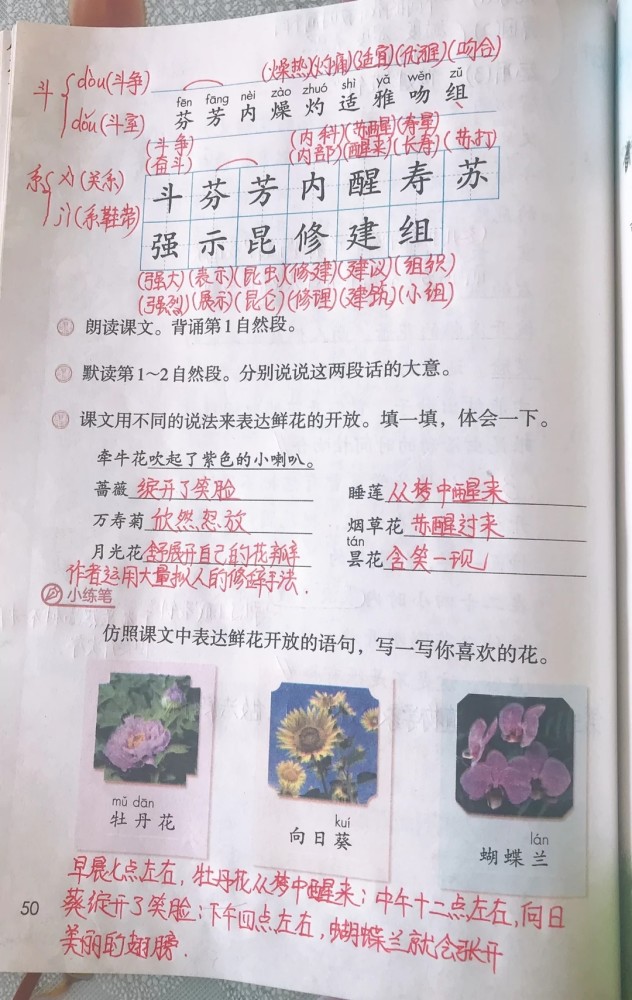 (燥热)(灼痛)(适宜)(优雅)(吻合)
斗 dòu(斗争)
dǒu(斗室)
fēn fāng nèi zào zhuó shì yǎ wěn zǔ
芬 芳 内 燥 灼 适 雅 吻 组
(斗争) (内科)(苏醒)(寿星)
(奋斗) (内部)(醒来)(长寿)(苏打)
系 xì(关系)
jì(系鞋带)
斗 芬 芳 内 醒 寿 苏
强 示 昆 修 建 组
(强大)(表示)(昆虫)(修建)(建议)(组织)
(强烈)(展示)(昆仑)(修理)(建筑)(小组)
朗读课文。背诵第1自然段。
默读第1~2自然段。分别说说这两段话的大意。
课文用不同的说法来表达鲜花的开放。填一填,体会一下。
牵牛花吹起了紫色的小喇叭。
蔷薇 绽开了笑脸 睡莲 从梦中醒来
万寿菊 欣然怒放 烟草花 苏醒过来
tán
月光花 舒展开自己的花瓣 昙花 含笑一现
作者运用大量拟人的修辞手法.
小练笔
仿照课文中表达鲜花开放的语句,写一写你喜欢的花。
mǔ dān
牡丹花
kuí
向日葵
lán
蝴蝶兰
早晨七点左右,牡丹花从梦中醒来;中午十二点左右,向日
葵绽开了笑脸;下午四点左右,蝴蝶兰就会张开
美丽的翅膀.
50